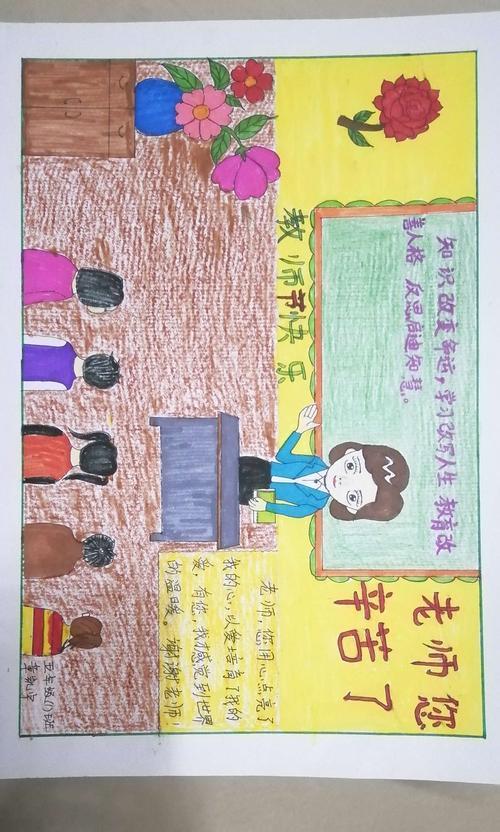 知识改变命运，学习改写人生 教育改
善人格 反思启迪知慧。
老师您
辛苦了
教师节快乐
老师，您用心点亮了
我的心，以爱培育了我的
爱，有您，我才感觉到世界
的温暖。谢谢老师！
五年级(1)班